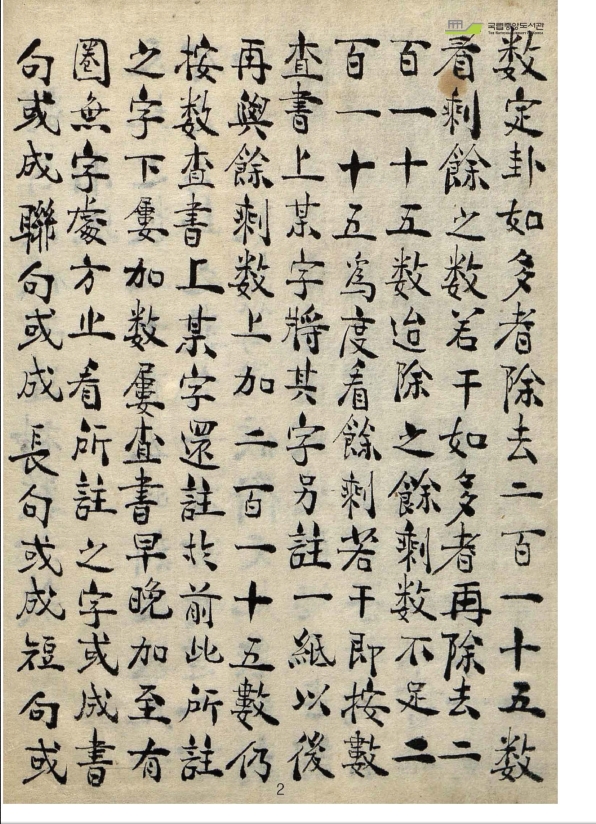 국립중앙도서관
THE NATIONAL LIBRARY OF KOREA
数定卦如多者除去二百一十五数
看剩餘之数若干如多者再除去二
百一十五数迨除之餘剩数不足二
百一十五爲度看餘剩若干即按數
查書上某字將其字另註一紙以後
再與餘剩数上加二百一十五數仍
按数查書上某字還註扵前此所註
之字下屢加数屢查書早晚加至有
圈無字處方止看所註之字或成書
句或成聯句或成長句或成短句或
2